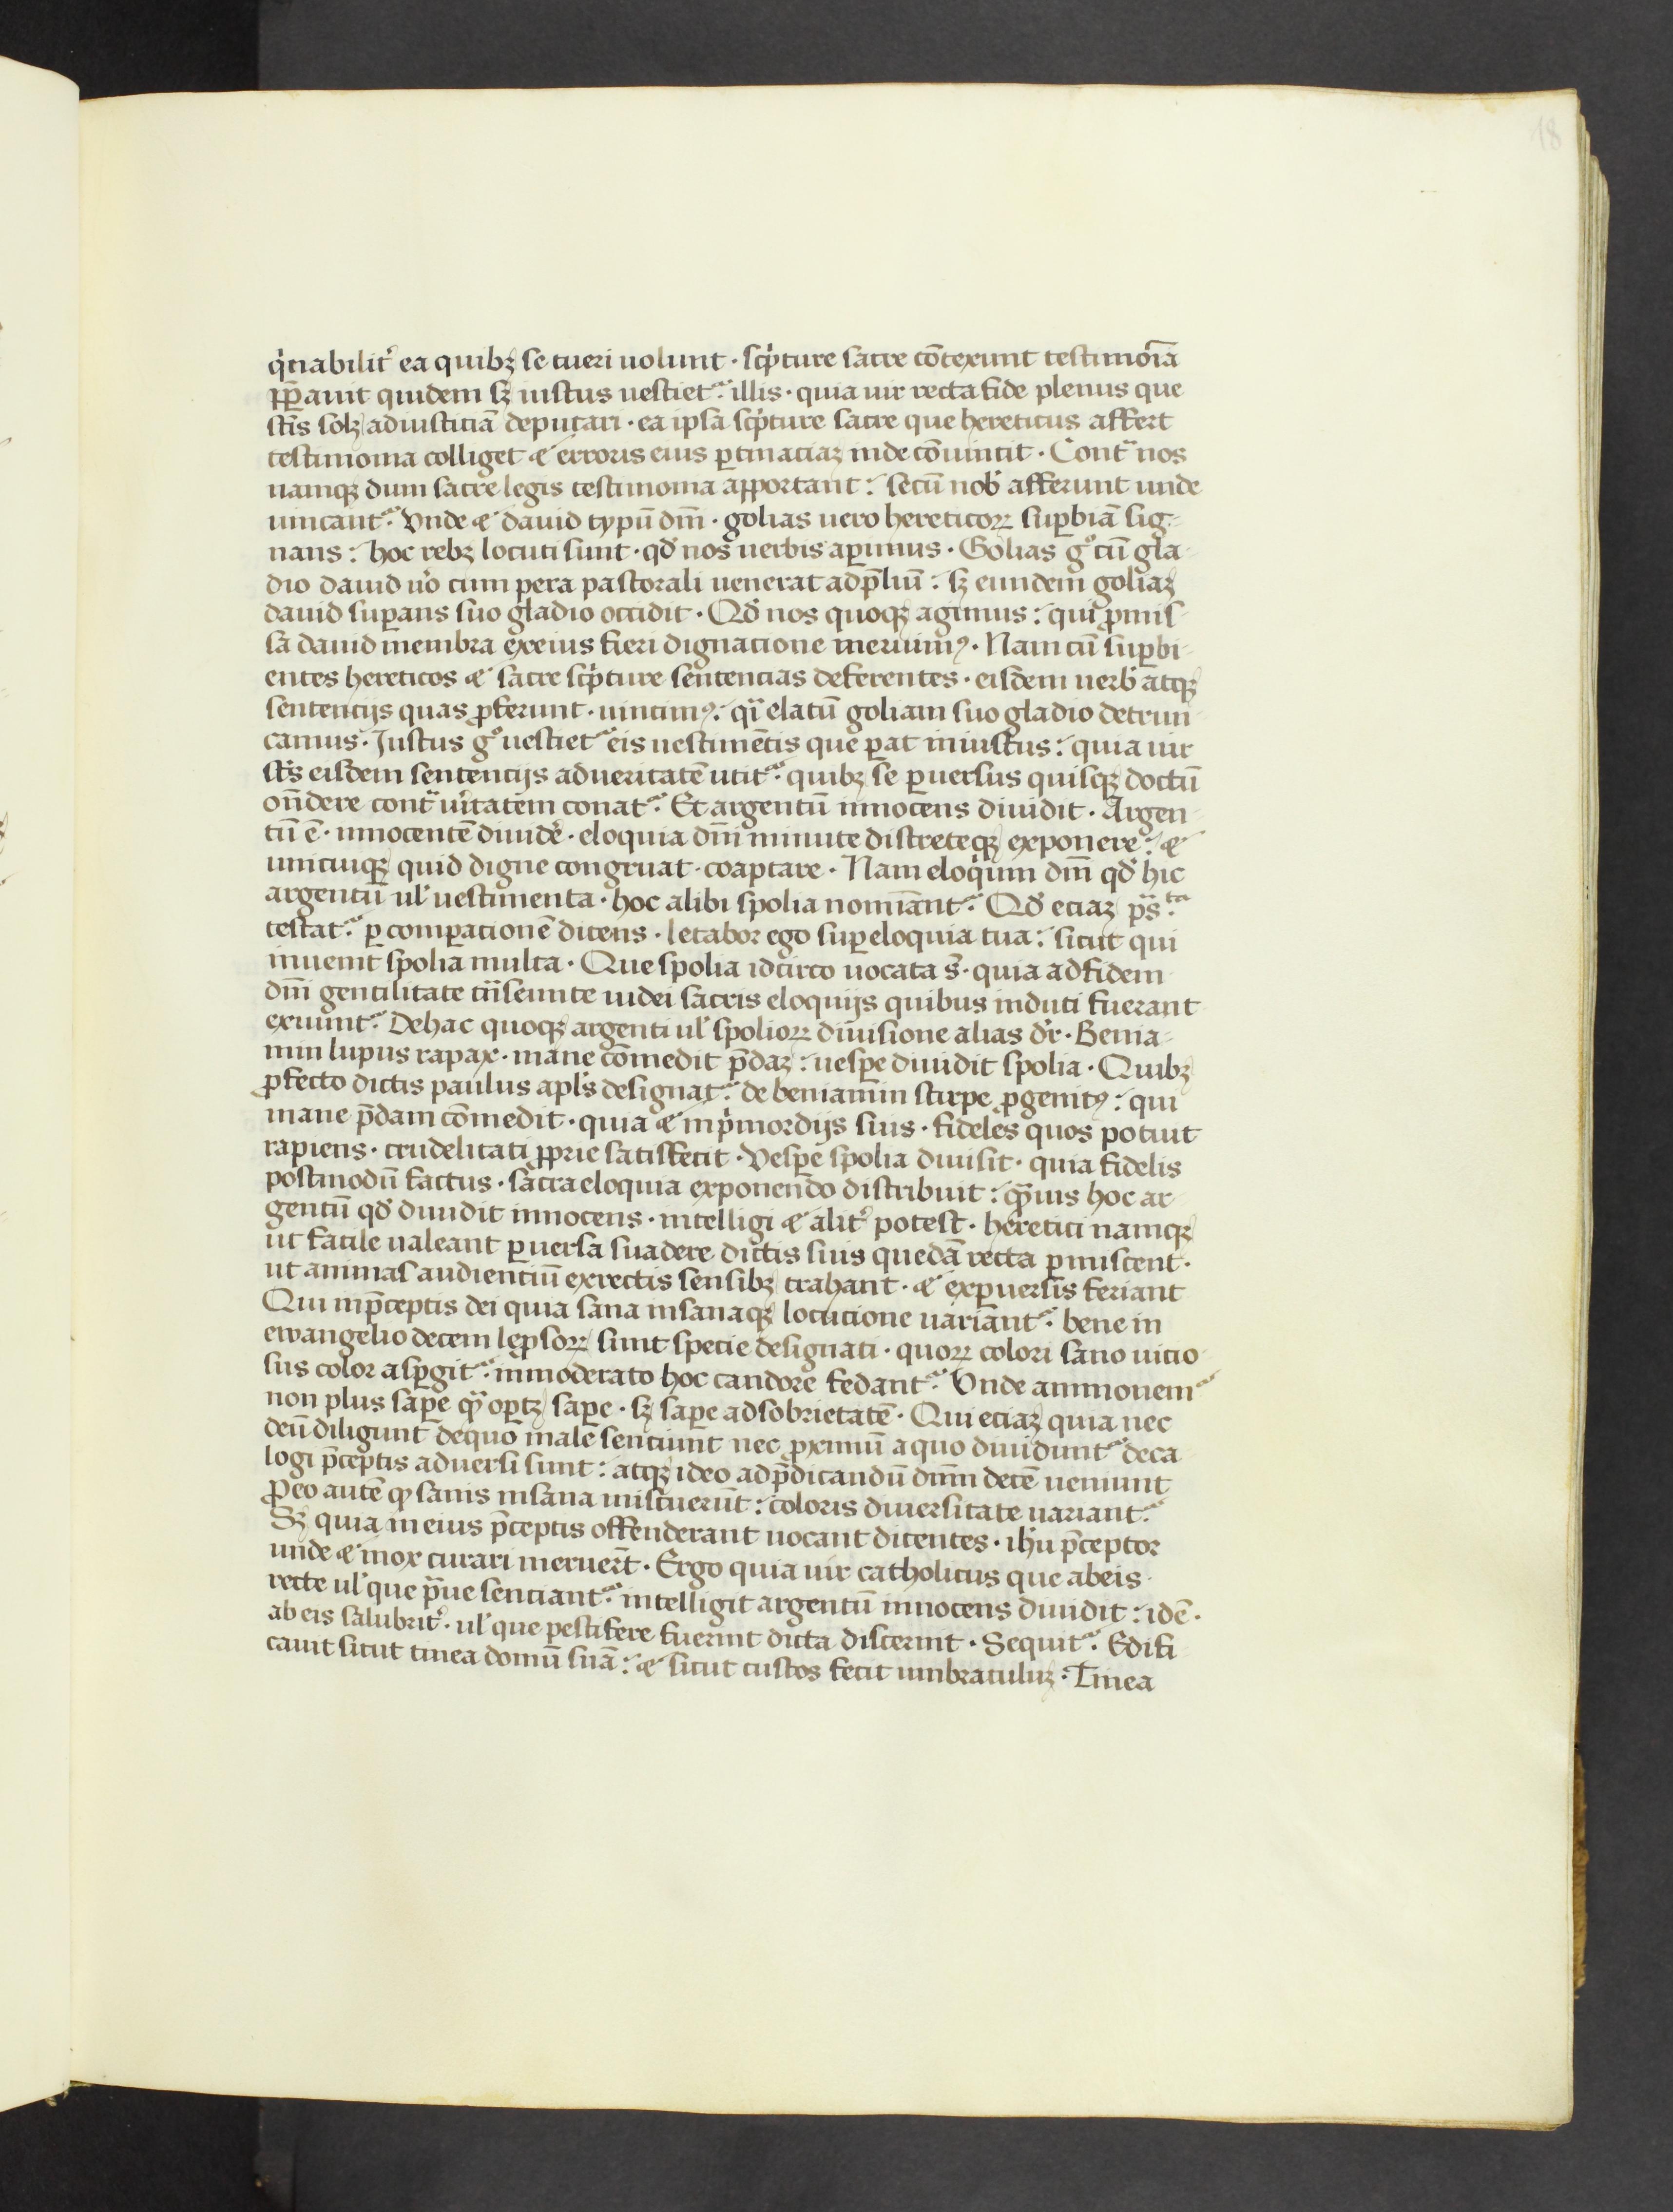 18
q̇nabilit᷑ ea quibꝫ se tueri uolunt · scṗture sacre cōtexunt testimoīa
p̄p̄auit quidem sꝫ iustus uestiet᷑ illis · quia uir recta fide plenus que
st̄is solꝫ adiusticiā deputari · ea ipsa scṗture sacre que hereticus affert
testimonia colliget ⁊ erroris eius ꝑtinaciaꝫ inde cōuincit · Cont᷑ nos
namqꝫ dum sacre legis testimonia apportant : secū nob᷑ afferunt unde
uincant᷑ Vnde ⁊ dauid typū dn̄i · golias uero hereticoꝝ suꝑbiā sig-
nans : hoc rebꝫ locuti sunt · qd̓ nos uerbis aꝑimus · Golias gͦ cū gla-
dio dauid u̓o cum pera pastorali uenerat adp̄liū : sꝫ eundem goliaꝫ
dauid suꝑans suo gladio occidit · Qd̓ nos quoqꝫ agimus : qui ꝓmis-
sa dauid membra exeius fieri dignacione meruimꝰ · Nam cū suꝑbi-
entes hereticos ⁊ sacre scṗture sentencias deferentes · eisdem uerb᷑ atqꝫ
sentencijs quas ꝓferunt · uincimꝰ : qͣi elatū goliam suo gladio detrun-
camus · Justus gͦ uestiet᷑ eis uestimētis que ꝑat iniustus : quia uir
st̄s eisdem sentencijs adueritatē utit᷑ quibꝫ se ꝑuersus quisqꝫ doctū
on̄dere contᷓ u̓itatem conat᷑ Et argentū innocens diuidit · Argen-
tū ē · innocentē diuid̓e · eloquia dn̄i minute discreteqꝫ exponere : ⁊
unicuiqꝫ quid digne congruat · coaptare · Nam eloq̇um dn̄i qd̓ hic
argentū ul̓ uestimenta · hoc alibi spolia nomīant᷑ Qd̓ eciaꝫ p̄s ᵗᵃ
testat᷑ ꝑ comꝑacionē dicens · letabor ego suꝑeloquia tua : sicut qui
inuenit spolia multa · Que spolia idcirco uocata s̄ · quia adfidem
dn̄i gentilitate tn̄seunte iudei sacris eloquijs quibus induti fuerant
exuunt᷑ Dehac quoqꝫ argenti ul̓ spolioꝝ diuisione alias dr̄ · Benia-
min lupus rapax · mane cōmedit p̄daꝫ : uesꝑe diuidit spolia · Quibꝫ
ꝓfecto dictis paulus apl̄s designat᷑ de beniamin stirpe ꝓgenitꝰ : qui
mane p̄dam cōmedit · quia ⁊ inṗmordijs suis · fideles quos potuit
rapiens · crudelitati ꝓprie satisfecit · Vesꝑe spolia diuisit · quia fidelis
postmodū factus · sacra eloquia exponendo distribuit : qᷓuis hoc ar-
gentū qd̓ diuidit innocens · intelligi ⁊ alit᷑ potest · heretici namqꝫ
ut facile ualeant ꝑuersa suadere dictis suis quedā recta ꝑmiscent ·
ut animas audienciū exrectis sensibꝫ trahant · ⁊ exꝑuersis feriant
Qui inp̄ceptis dei quia sana insanaqꝫ locucione uariant᷑ bene in
ewangelio decem leꝓsoꝝ sunt specie designati · quoꝝ colori sano uicio-
sus color asꝑgit᷑ inmoderato hoc candore fedant᷑ Vnde ammonem᷑
non plus saꝑe qᷓ oꝑtꝫ saꝑe · sꝫ saꝑe adsobrietatē · Qui eciaꝫ quia nec
deū diligunt dequo male senciunt nec ꝓximū aquo diuidunt᷑ deca-
logi p̄ceptis aduersi sunt : atqꝫ ideo adp̄dicandū dn̄m decē ueniunt
Ꝓeo autē ꝙ sanis insana miscuerūt : coloris diuersitate uariant᷑
Sꝫ quia in eius p̄ceptis offenderant uocant dicentes · ih̄u p̄ceptor
unde ⁊ mox curari meruer̄t · Ergo quia uir catholicus que abeis
recte ul̓ que pᷓue senciant᷑ intelligit argentū innocens diuidit : idē ·
ab eis salubrit᷑ · ul̓ que pestifere fuerint dicta discernit · Sequit᷑ Edifi-
cauit sicut tinea domū suā : ⁊ sicut custos fecit umbraculuꝫ · Tinea